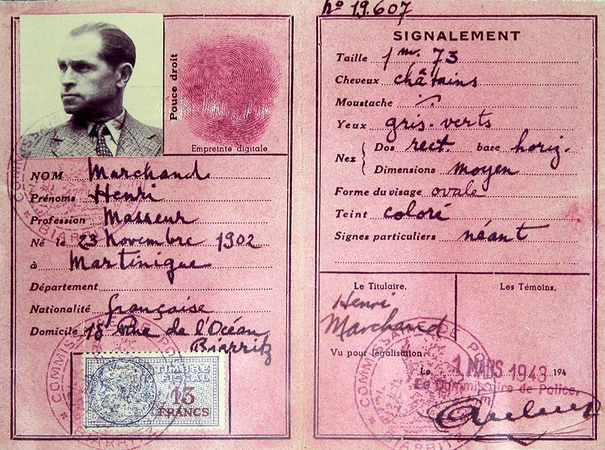 Pouce droit
Empreinte digitale
NOM Marchand
Prénoms Henri
Profession Masseur
Né le 23 Novembre 1902
à Martinique
Département
Nationalité française
Domicile 18 Rue de l'Océan
Biarritz
TIMBRE FISCAL
15 FRANCS
COMMISSARIAT DE POLICE
BIARRITZ
No 19.607
SIGNALEMENT
Taille 1m. 73
Cheveux châtains
Moustache
Yeux gris.verts
Nez { Dos rect. base horiz.
Dimensions moyen
Forme du visage ovale
Teint coloré
Signes particuliers néant
Le Titulaire,
Les Témoins,
Henri
Marchand
Vu pour légalisation.
Le 1 MARS 1943 194
Le Commissaire de Police,
BIARRITZ